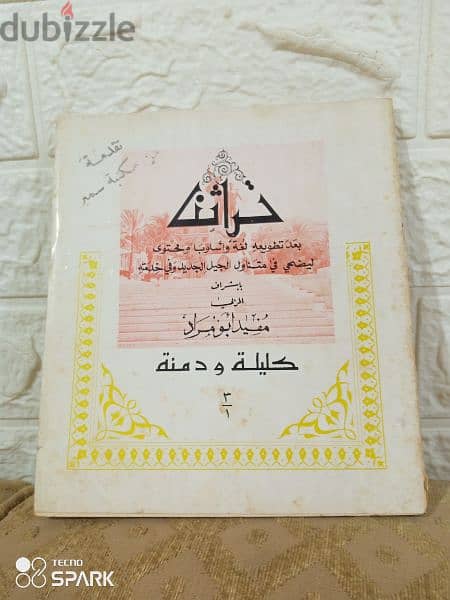 dubizzle
تقدمة
مكتبة سمير
تراثنا
بعد تطويعه لغة وأسلوبا ومحتوى
ليضحي في متناول الجيل الجديد وفي خدمته
بإشراف
المربي
مفيد أبو مراد
كليلة و دمنة
٣
١
TECNO
SPARK